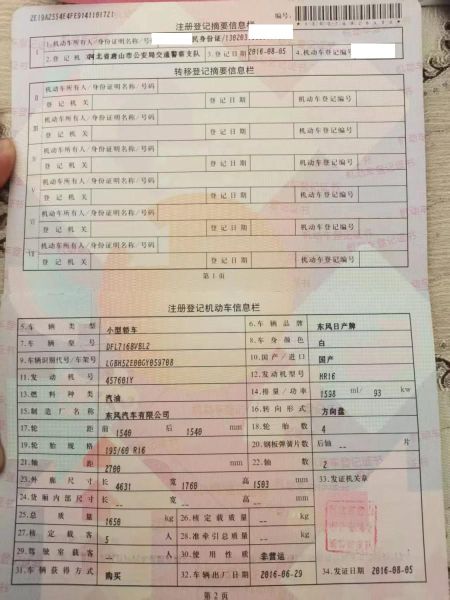 注册登记摘要信息栏
编号:
1.机动车所有人/身份证明名称/号码
2.登记机关 河北省唐山市公安局交通警察支队 3.登记日期 2016-08-05 4.机动车登记编号
转移登记摘要信息栏
Ⅱ 机动车所有人/身份证明名称/号码
登记机关 登记日期 机动车登记编号
Ⅲ 机动车所有人/身份证明名称/号码
登记机关 登记日期 机动车登记编号
Ⅳ 机动车所有人/身份证明名称/号码
登记机关 登记日期 机动车登记编号
Ⅴ 机动车所有人/身份证明名称/号码
登记机关 登记日期 机动车登记编号
Ⅵ 机动车所有人/身份证明名称/号码
登记机关 登记日期 机动车登记编号
Ⅶ 机动车所有人/身份证明名称/号码
登记机关 登记日期 机动车登记编号
第1页
注册登记机动车信息栏
5.车辆类型 小型轿车 6.车辆品牌 东风日产牌
7.车辆型号 DFL7168VBL2 8.车身颜色 白
9.车辆识别代号/车架号 LGBH52E00GY059708 10.国产/进口 国产
11.发动机号 457601Y 12.发动机型号 HR16
13.燃料种类 汽油 14.排量/功率 1598 ml/ 93 kw
15.制造厂名称 东风汽车有限公司 16.转向形式 方向盘
17.轮距 前 1540 后 1540 mm 18.轮胎数 4
19.轮胎规格 195/60 R16 20.钢板弹簧片数 后轴 -- 片
21.轴距 2700 mm 22.轴数 2
23.外廓尺寸 长 4631 宽 1760 高 1503 mm 33.发证机关章
24.货厢内部尺寸 长 -- 宽 -- 高 -- mm
25.总质量 1650 kg 26.核定载质量 -- kg
27.核定载客 5 人 28.准牵引总质量 -- kg
29.驾驶室载客 -- 人 30.使用性质 非营运
31.车辆获得方式 购买 32.车辆出厂日期 2016-06-29 34.发证日期 2016-08-05
第2页